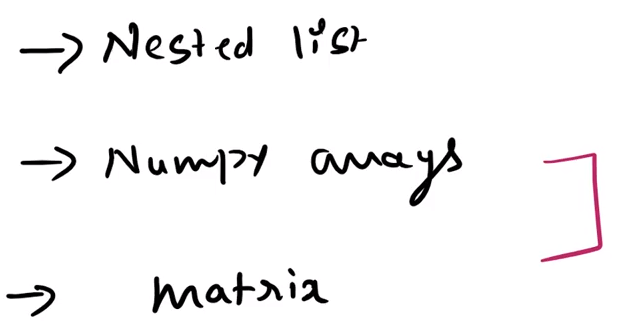 → Nested list
→ Numpy arrays
→ matrix